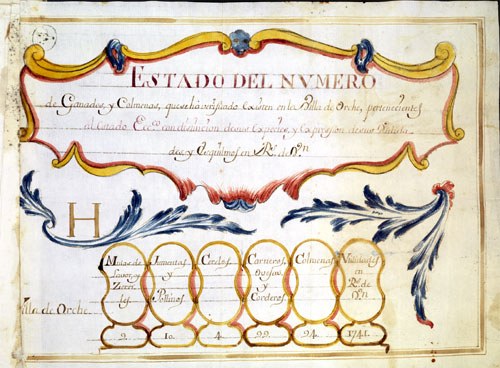 ESTADO DEL NVMERO
de Ganados, y Colmenas, que se ha verificado existen en la Villa de Orche, pertenecientes
al Estado Ecco con distincion de sus Especies, y Expresion de sus Utilida
des, y Esquilmos en Rs. de Vn
H
Mulas de Lavor, y Zerri les
Jumentas y Pollinos
Cerdos
Carneros Ovejas y Corderos
Colmenas
Utilidades en Rs. de Vn
Villa de Orche
2. 10. 4. 99. 94. 1741.